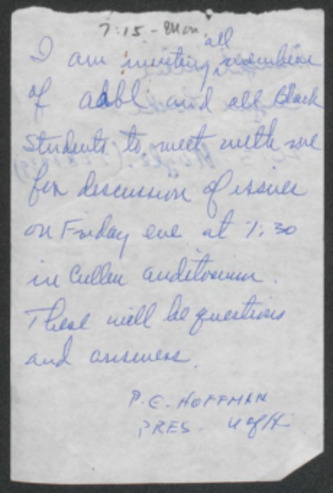 7:15 - Mon
all
I am inviting members
of aabl and all Black
Students to meet with me
for discussion of issues
on Friday eve at 7:30
in Cullen auditorium.
There will be questions
and answers
P.G. HOFFMAN
PRES. U of H